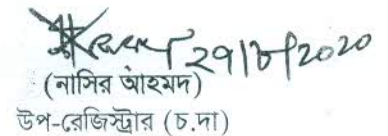 ২৭/৮/২০২০
(নাসির আহমদ)
উপ-রেজিস্ট্রার (চ.দা)